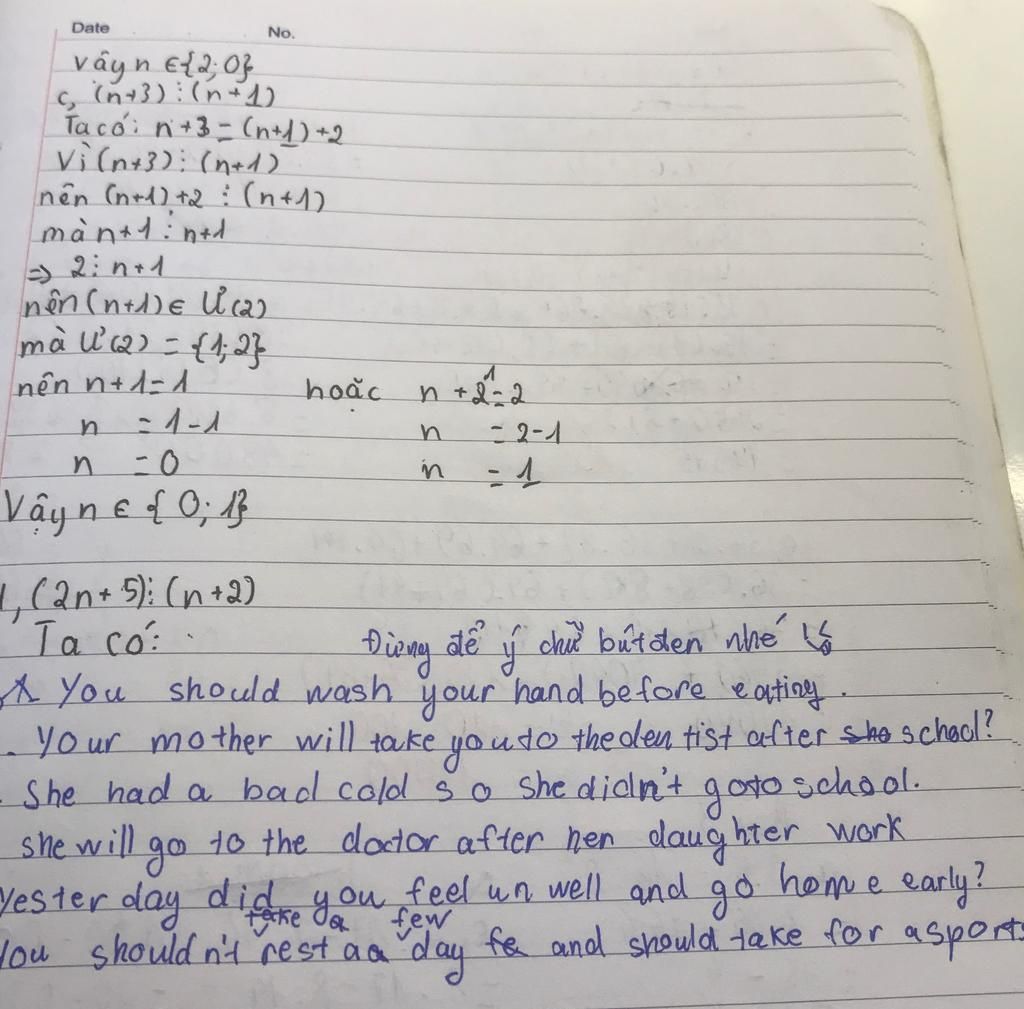 Date No.
Vâyn ∈{2;0}
c, (n+3)⋮(n+1)
Ta có: n+3=(n+1)+2
Vì (n+3)⋮(n+1)
nên (n+1)+2 ⋮ (n+1)
mà n+1⋮n+1
=> 2⋮n+1
nên (n+1)∈ Ư(2)
mà Ư(2) = {1;2}
nên n+1=1 hoặc n+1=2
n =1-1 n =2-1
n =0 n =1
Vậy n ∈ { 0; 1}
, (2n+5)⋮(n+2)
Ta có: Đừng để ý chữ bút đen nhé
You should wash your hand before eating.
. Your mother will take you to the dentist after sho school?
. She had a bad cold so she didn't go to school.
she will go to the doctor after her daughter work
Yesterday did you feel unwell and go home early?
take a few
You shouldn't rest aa day fe and should take for a sports